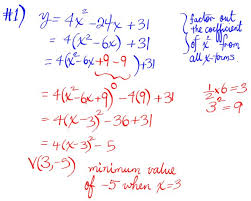 #1) y = 4x² - 24x + 31
= 4(x² - 6x) + 31
= 4(x² - 6x + 9 - 9) + 31
0
= 4(x² - 6x + 9) - 4(9) + 31
= 4(x - 3)² - 36 + 31
= 4(x - 3)² - 5
V(3, -5) minimum value
of -5 when x = 3
factor out
the coefficient
of x² from
all x-terms
½ x 6 = 3
3² = 9